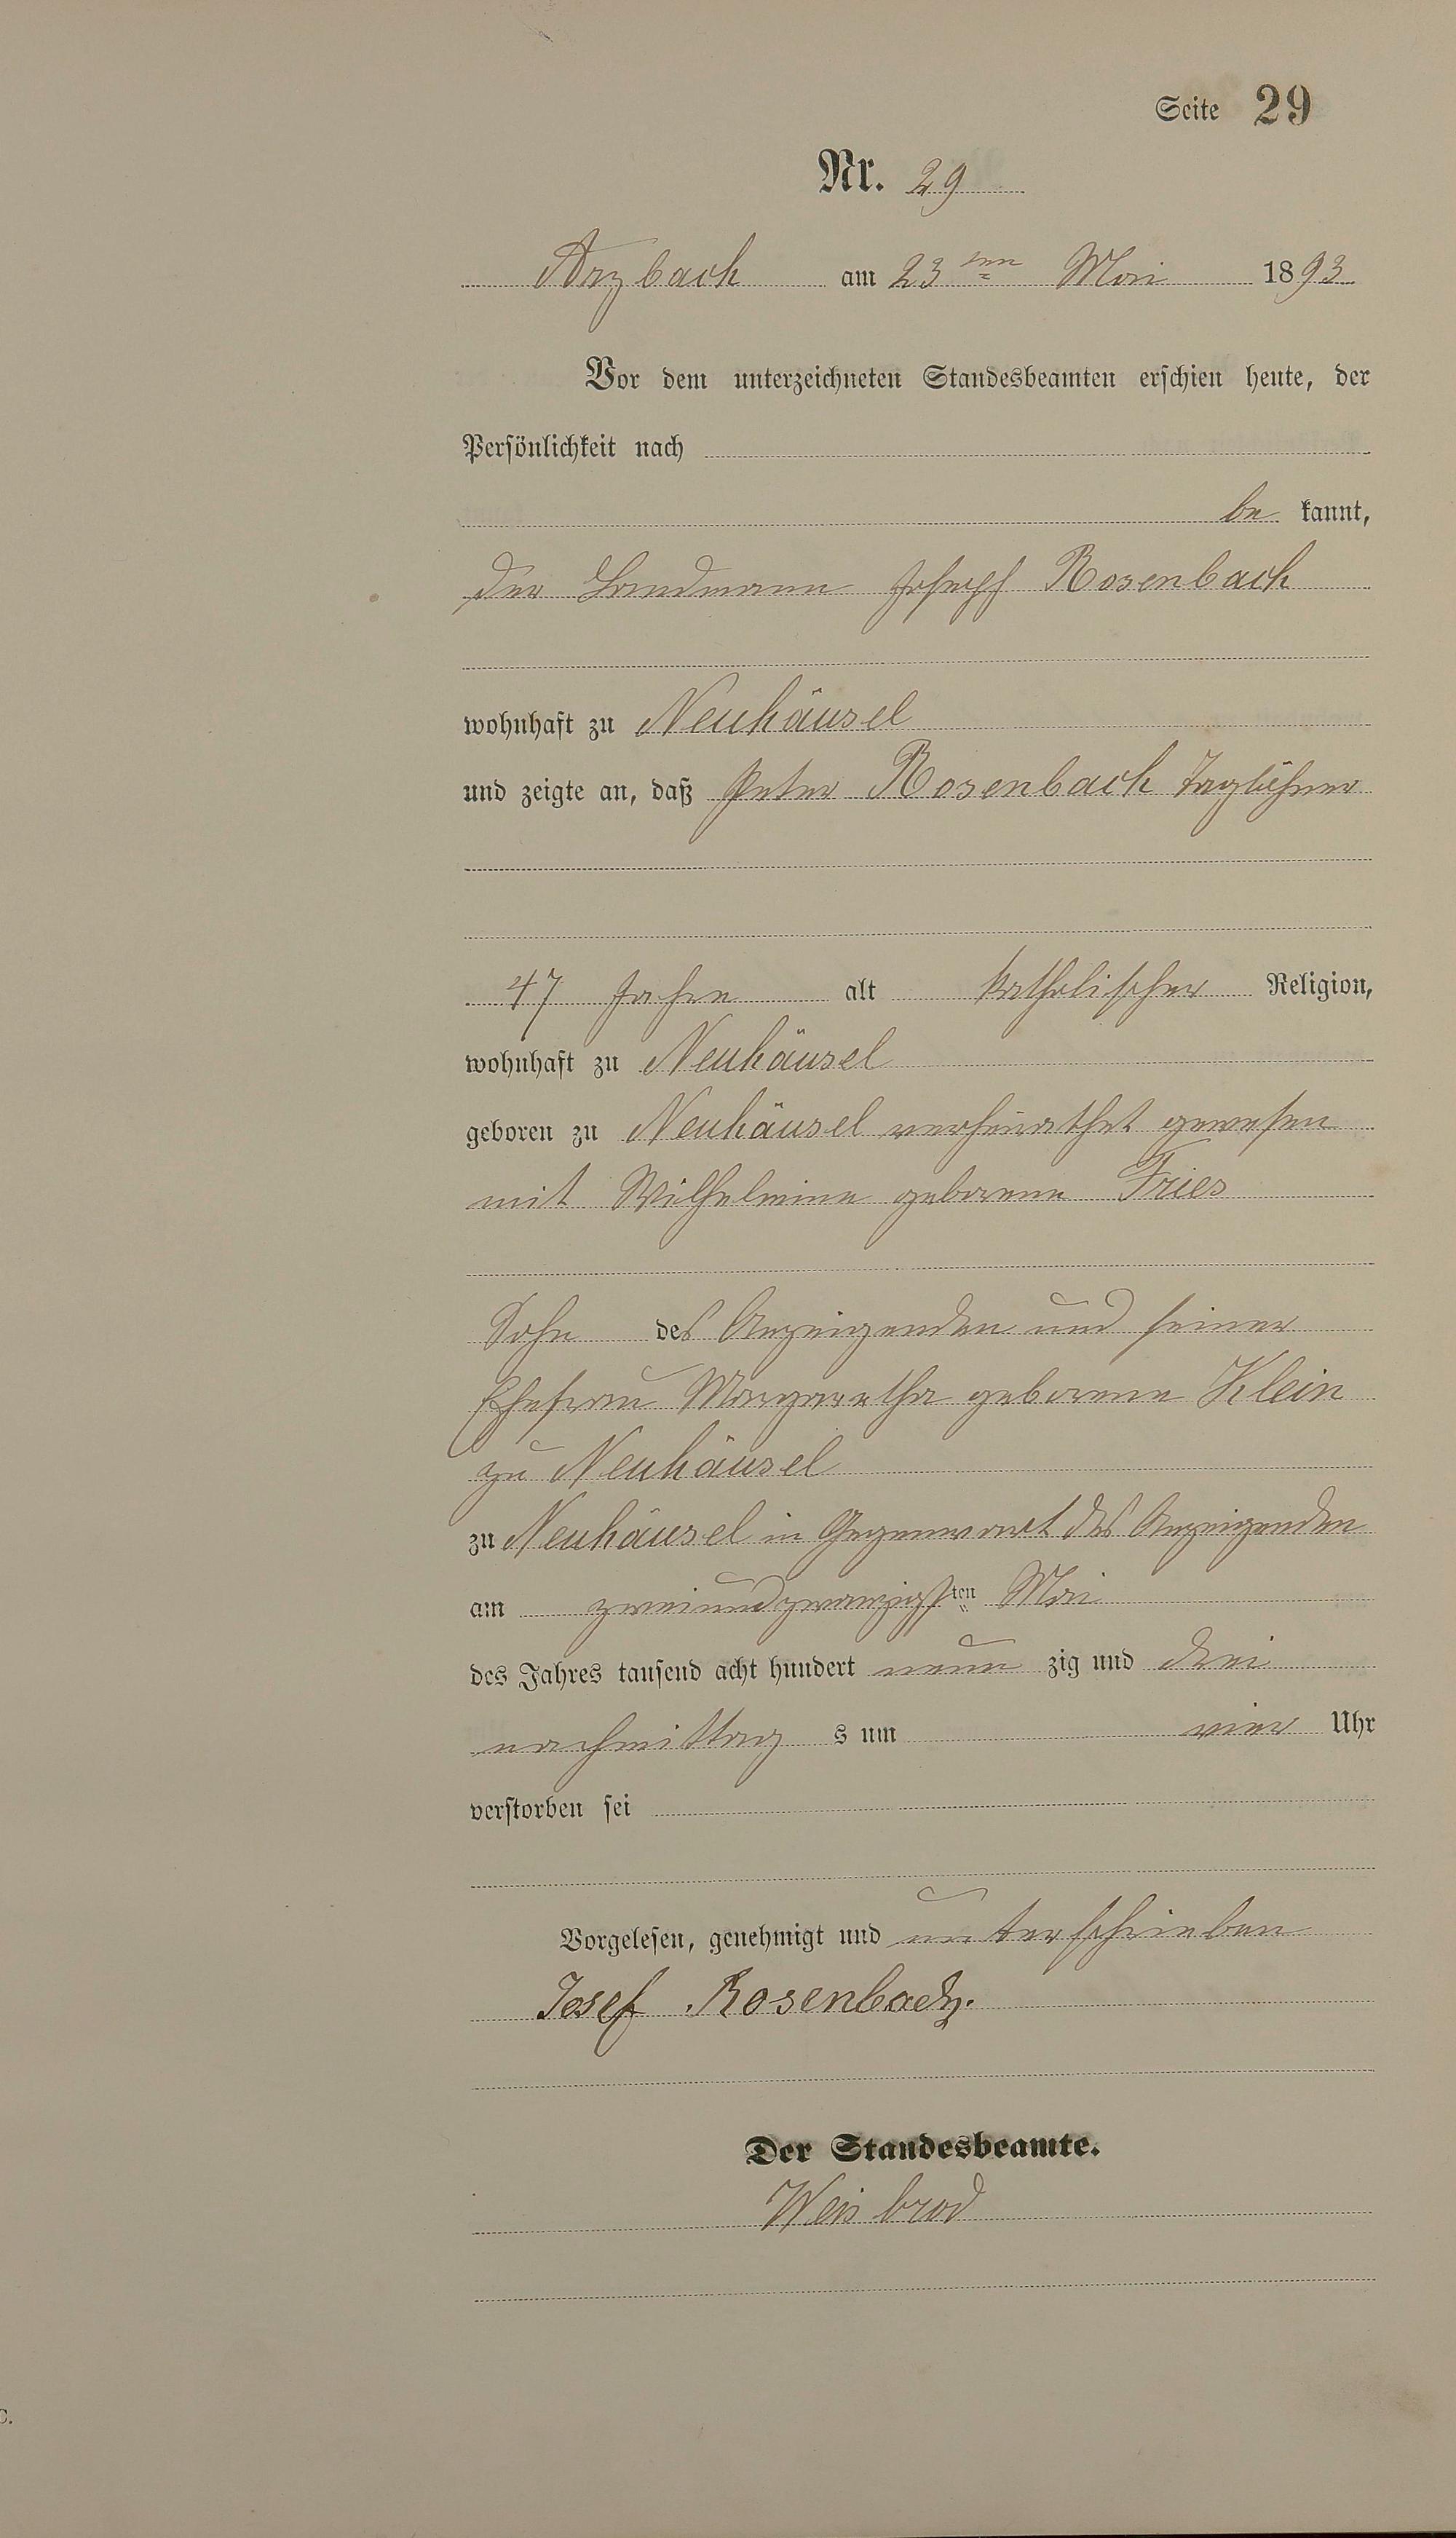 Seite 29
Nr. 29
Arzbach am 23ten Mai 1893
Vor dem unterzeichneten Standesbeamten erschien heute, der
Persönlichkeit nach
be kannt,
der Landmann Joseph Rosenbach
wohnhaft zu Neuhäusel
und zeigte an, daß Peter Rosenbach Taglöhner
47 Jahre alt katholischer Religion,
wohnhaft zu Neuhäusel
geboren zu Neuhäusel verheirathet gewesen
mit Wilhelmine geborene Fries
Sohn des Anzeigenden und seiner
Ehefrau Margaretha geborene Klein
zu Neuhäusel
zu Neuhäusel in Gegenwart des Anzeigenden
am zweiundzwanzigsten Mai
des Jahres tausend acht hundert neun zig und drei
nachmittag s um vier Uhr
verstorben sei
Vorgelesen, genehmigt und unterschrieben
Josef Rosenbach.
Der Standesbeamte.
Weisbrod
C.